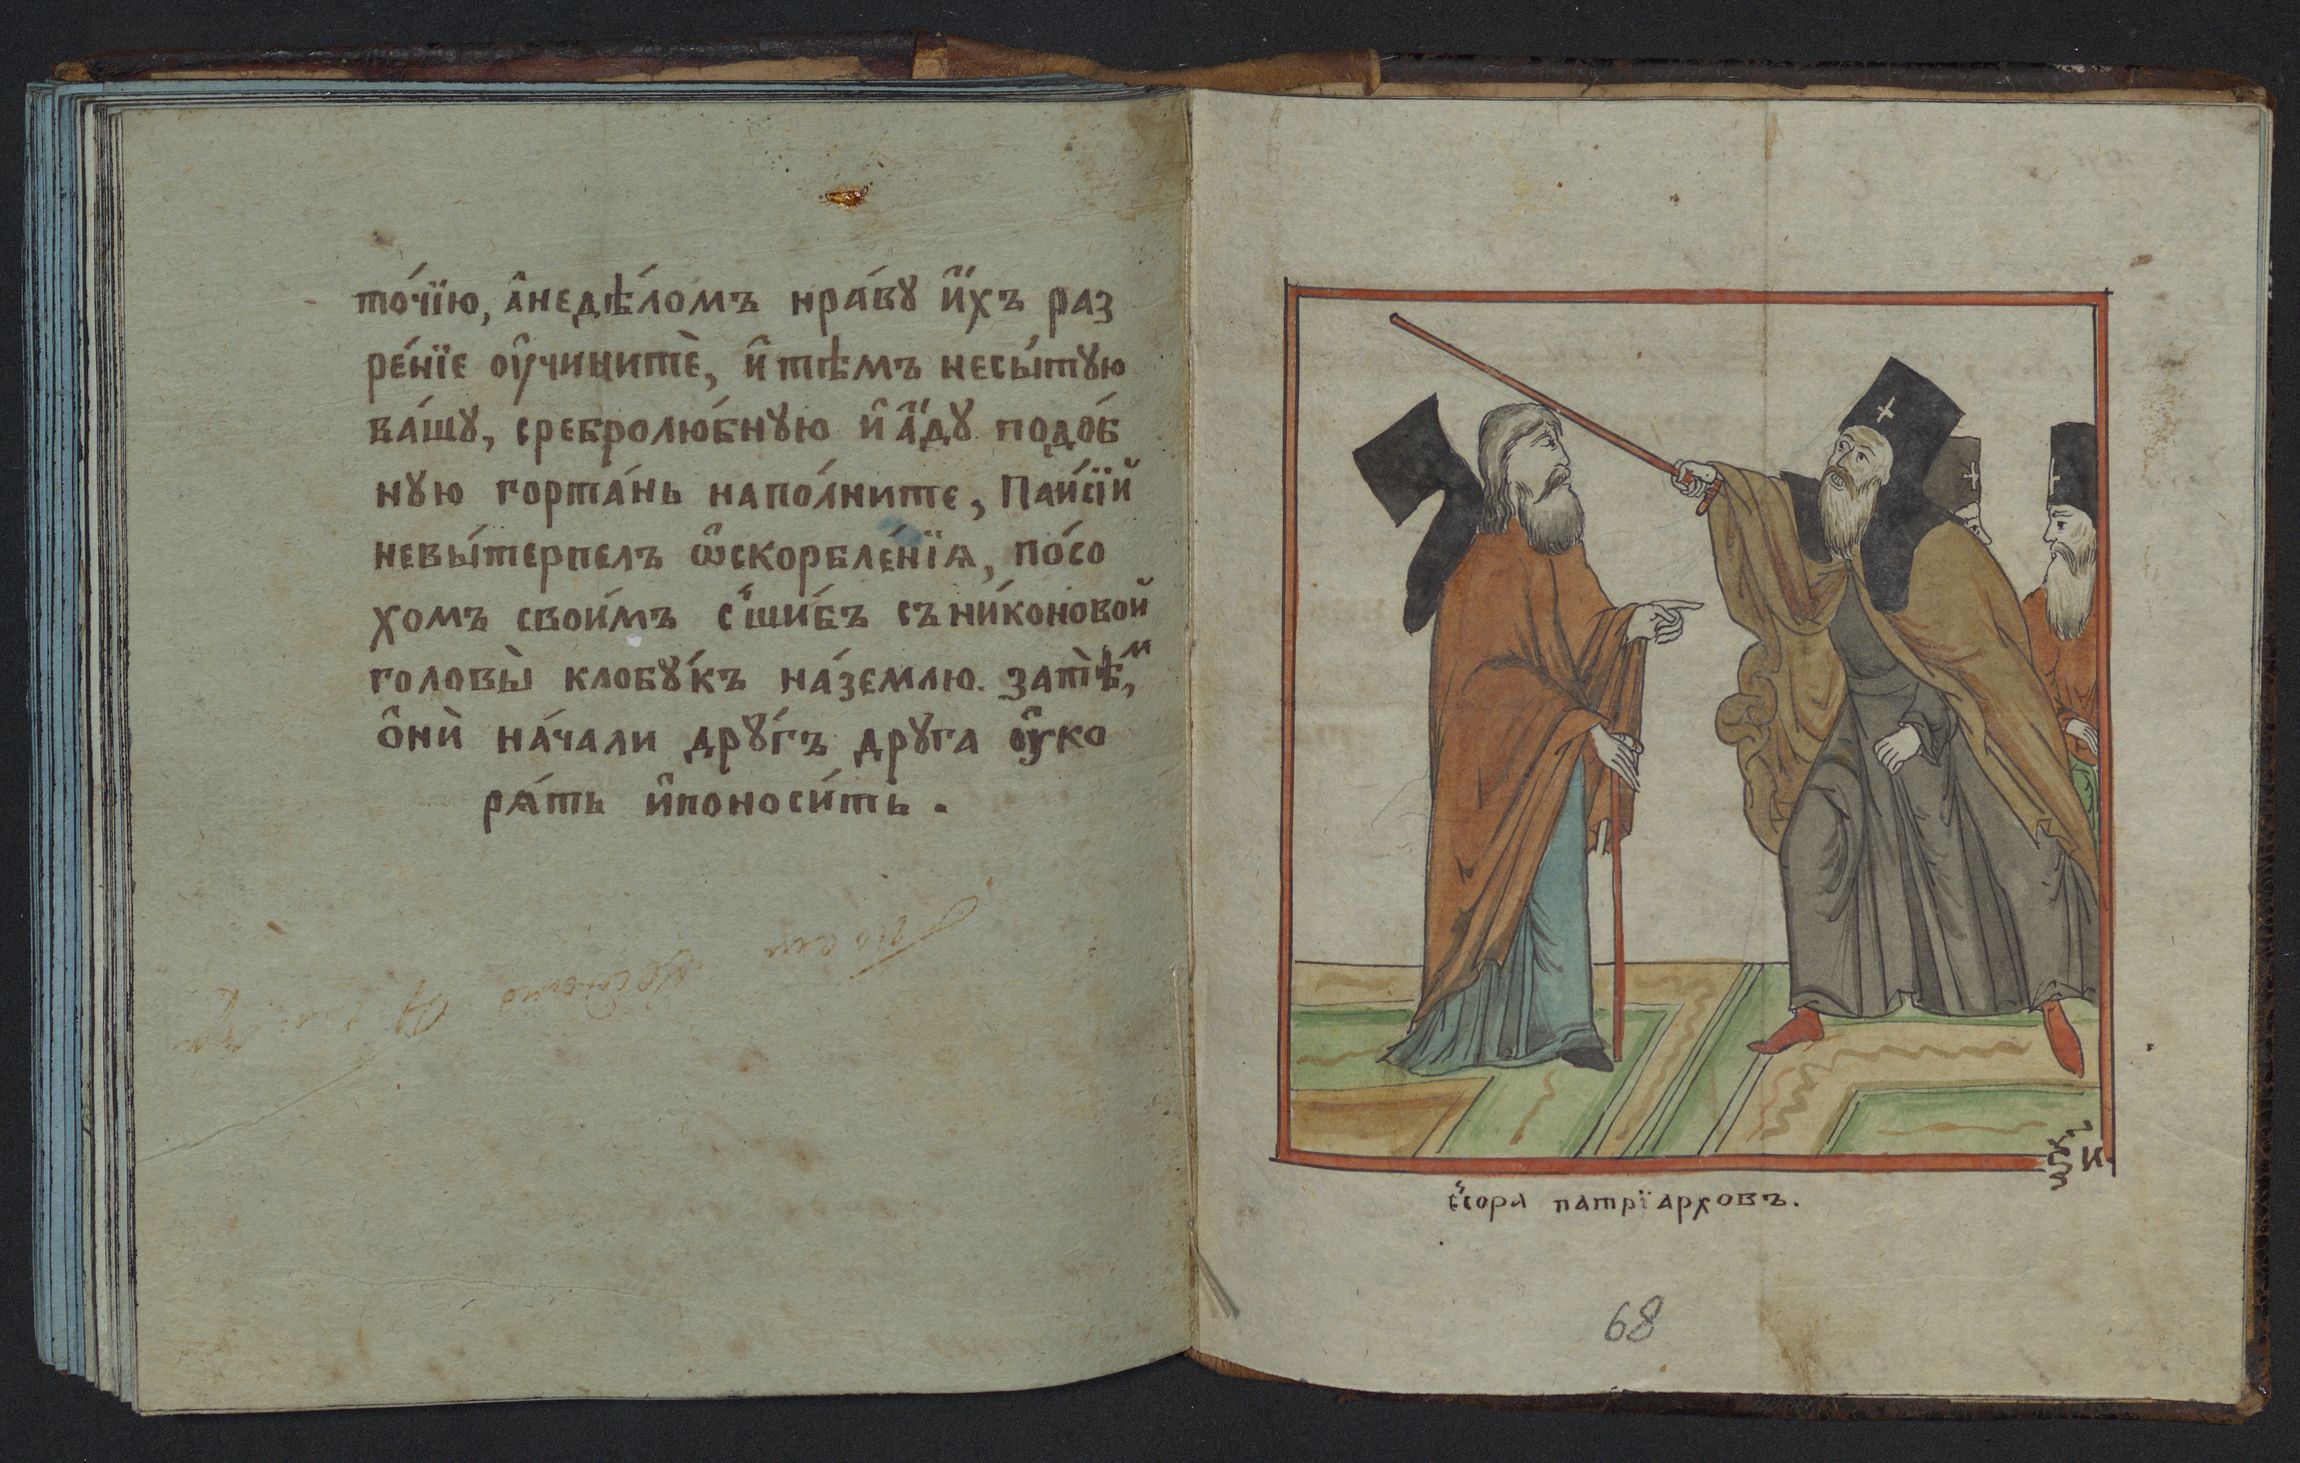 то́чїю, а҆недѣ́ломъ нра́ву и҆́хъ раз
ре́нїе ѹ҆чинитѐ, и҆тѣмъ несы́тую
ва́шу, сребролю́бную и҆ а҆́ду подо́б
ную горта́нь напо́лните, Паи́сїй
невы́терпелъ ѡ҆скорбле́нїѧ, по́со
хомъ свои́мъ сшибъ съни́коновой
головы̀ клобу́къ на́землю. затѣ́м,
о҆нѝ на́чали дру́гъ друга ѹ҆ко
рѧ́ть и҆поноси́ть.
ссора патрїарховъ.
68